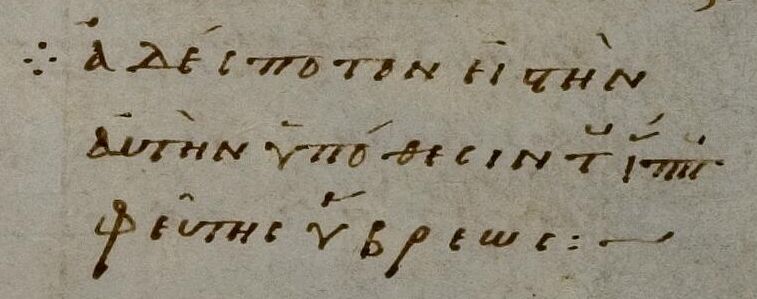 ⁘ ἀδέσποτον εἰς τὴν
ἀυτὴν ὑπόθεσιν τ ἵππ
φεῦ της ὕβρεως :—